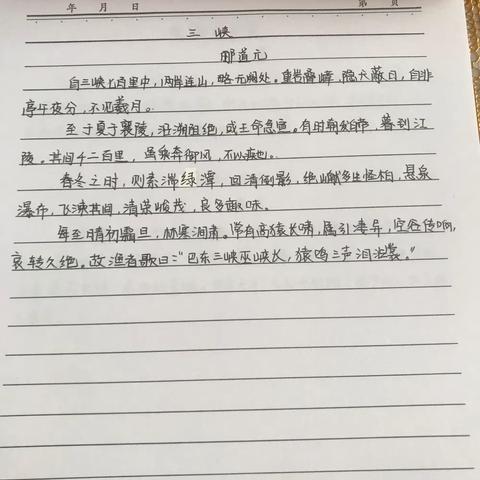 年 月 日 第 页
三 峡
郦道元
自三峡七百里中，两岸连山，略无阙处。重岩叠嶂，隐天蔽日，自非
亭午夜分，不见曦月。
至于夏水襄陵，沿溯阻绝，或王命急宣。有时朝发白帝，暮到江
陵。其间千二百里，虽乘奔御风，不以疾也。
春冬之时，则素湍绿潭，回清倒影，绝巘多生怪柏，悬泉
瀑布，飞漱其间，清荣峻茂，良多趣味。
每至晴初霜旦，林寒涧肃。常有高猿长啸，属引凄异，空谷传响，
哀转久绝。故渔者歌曰："巴东三峡巫峡长，猿鸣三声泪沾裳。"